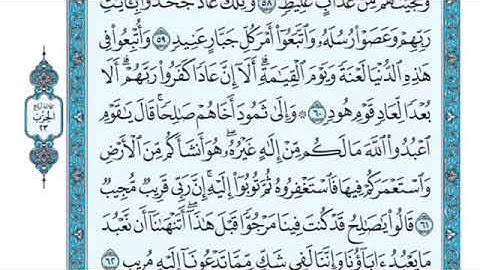 وَنَجَّيْنَٰهُم مِّنْ عَذَابٍ غَلِيظٍ ٥٨ وَتِلْكَ عَادٌ جَحَدُوا۟ بِـَٔايَٰتِ
رَبِّهِمْ وَعَصَوْا۟ رُسُلَهُۥ وَٱتَّبَعُوٓا۟ أَمْرَ كُلِّ جَبَّارٍ عَنِيدٍ ٥٩ وَأُتْبِعُوا۟ فِى
هَٰذِهِ ٱلدُّنْيَا لَعْنَةً وَيَوْمَ ٱلْقِيَٰمَةِ ۗ أَلَآ إِنَّ عَادًا كَفَرُوا۟ رَبَّهُمْ ۗ أَلَا
بُعْدًا لِّعَادٍ قَوْمِ هُودٍ ٦٠ ۞ وَإِلَىٰ ثَمُودَ أَخَاهُمْ صَٰلِحًا ۚ قَالَ يَٰقَوْمِ
ٱعْبُدُوا۟ ٱللَّهَ مَا لَكُم مِّنْ إِلَٰهٍ غَيْرُهُۥ ۖ هُوَ أَنشَأَكُم مِّنَ ٱلْأَرْضِ
وَٱسْتَعْمَرَكُمْ فِيهَا فَٱسْتَغْفِرُوهُ ثُمَّ تُوبُوٓا۟ إِلَيْهِ ۚ إِنَّ رَبِّى قَرِيبٌ مُّجِيبٌ
٦١ قَالُوا۟ يَٰصَٰلِحُ قَدْ كُنتَ فِينَا مَرْجُوًّا قَبْلَ هَٰذَآ ۖ أَتَنْهَىٰنَآ أَن نَّعْبُدَ
مَا يَعْبُدُ ءَابَآؤُنَا وَإِنَّنَا لَفِى شَكٍّ مِّمَّا تَدْعُونَآ إِلَيْهِ مُرِيبٍ ٦٢
الحزب
٢٣